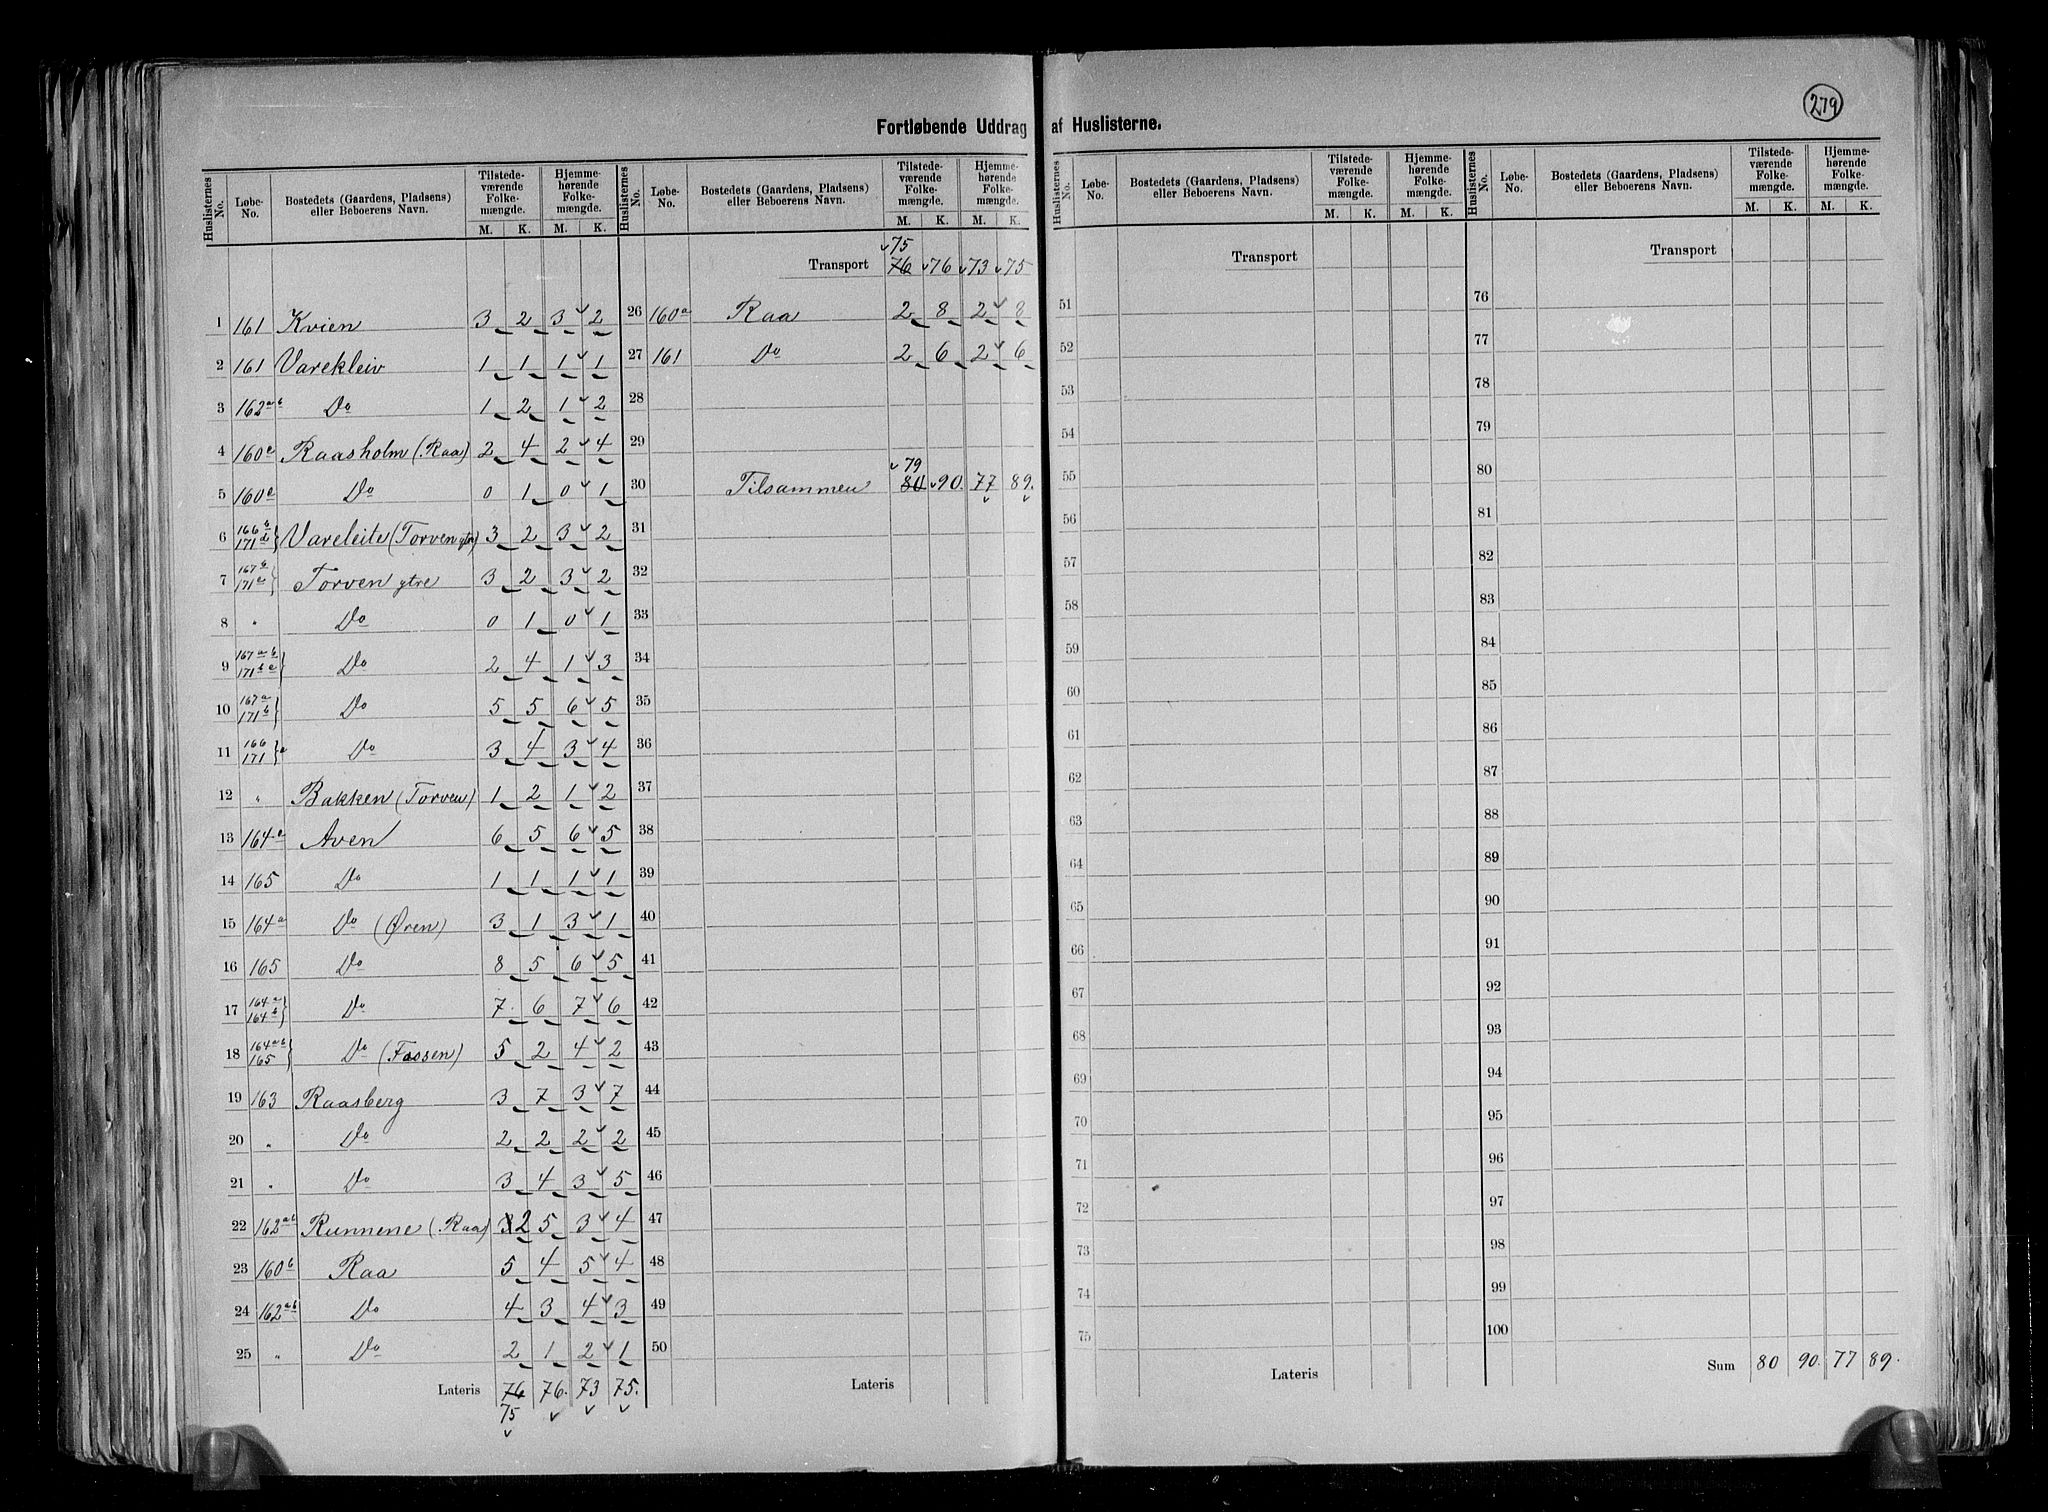 279
Fortløbende Uddrag af Huslisterne.
Huslisternes No. | Løbe-No. | Bostedets (Gaardens, Pladsens) eller Beboerens Navn. | Tilstedeværende Folkemængde. M. K. | Hjemmehørende Folkemængde. M. K.
1 161 Kvien 3 2 3 2
2 161 Varekleiv 1 1 1 1
3 162 a b Do 1 2 1 2
4 160 Raasholm (Raa) 2 4 2 4
5 160 Do 0 1 0 1
6 166 b 171 d } Vareleite (Torven ytre) 3 2 3 2
7 167 b 171 e } Torven ytre 3 2 3 2
8 " Do 0 1 0 1
9 167 a b 171 b e } Do 2 4 1 3
10 167 a 171 b } Do 5 5 6 5
11 166 171 } a Do 3 4 3 4
12 " Bakken (Torven) 1 2 1 2
13 164 a Aven 6 5 6 5
14 165 Do 1 1 1 1
15 164 a Do (Øren) 3 1 3 1
16 165 Do 8 5 6 5
17 164 a 164 b } Do 7 6 7 6
18 164 a b 165 } Do (Fossen) 5 2 4 2
19 163 Raasberg 3 7 3 7
20 " Do 2 2 2 2
21 " Do 3 4 3 5
22 162 a b Runnene (Raa) 3 2 5 3 4
23 160 b Raa 5 4 5 4
24 162 a b Do 4 3 4 3
25 " Do 2 1 2 1
Lateris 76 76. 73 75.
75
Huslisternes No. | Løbe-No. | Bostedets (Gaardens, Pladsens) eller Beboerens Navn. | Tilstedeværende Folkemængde. M. K. | Hjemmehørende Folkemængde. M. K.
75
Transport 76 76 73 75
26 160 a Raa 2 8 2 8
27 161 Do 2 6 2 6
28
29
79
30 Tilsammen 80 90. 77 89.
31
32
33
34
35
36
37
38
39
40
41
42
43
44
45
46
47
48
49
50
Lateris
Huslisternes No. | Løbe-No. | Bostedets (Gaardens, Pladsens) eller Beboerens Navn. | Tilstedeværende Folkemængde. M. K. | Hjemmehørende Folkemængde. M. K.
Transport
51
52
53
54
55
56
57
58
59
60
61
62
63
64
65
66
67
68
69
70
71
72
73
74
75
Lateris
Huslisternes No. | Løbe-No. | Bostedets (Gaardens, Pladsens) eller Beboerens Navn. | Tilstedeværende Folkemængde. M. K. | Hjemmehørende Folkemængde. M. K.
Transport
76
77
78
79
80
81
82
83
84
85
86
87
88
89
90
91
92
93
94
95
96
97
98
99
100
Sum 80 90. 77 89.